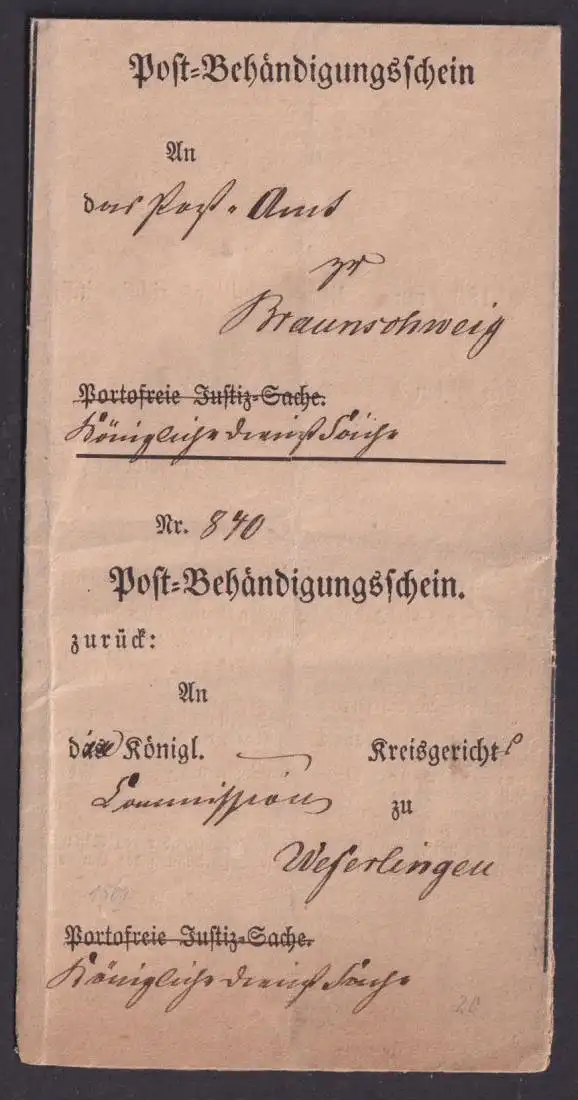 Post-Behändigungsschein
An
das Post-Amt
zu
Braunschweig
Portofreie Justiz-Sache.
Königliche Dienst Sache
Nr. 840
Post-Behändigungsschein.
zurück:
An
die Königl. Kreisgerichts
Commission
zu
Weferlingen
1869
Portofreie Justiz-Sache.
Königliche Dienst Sache
20